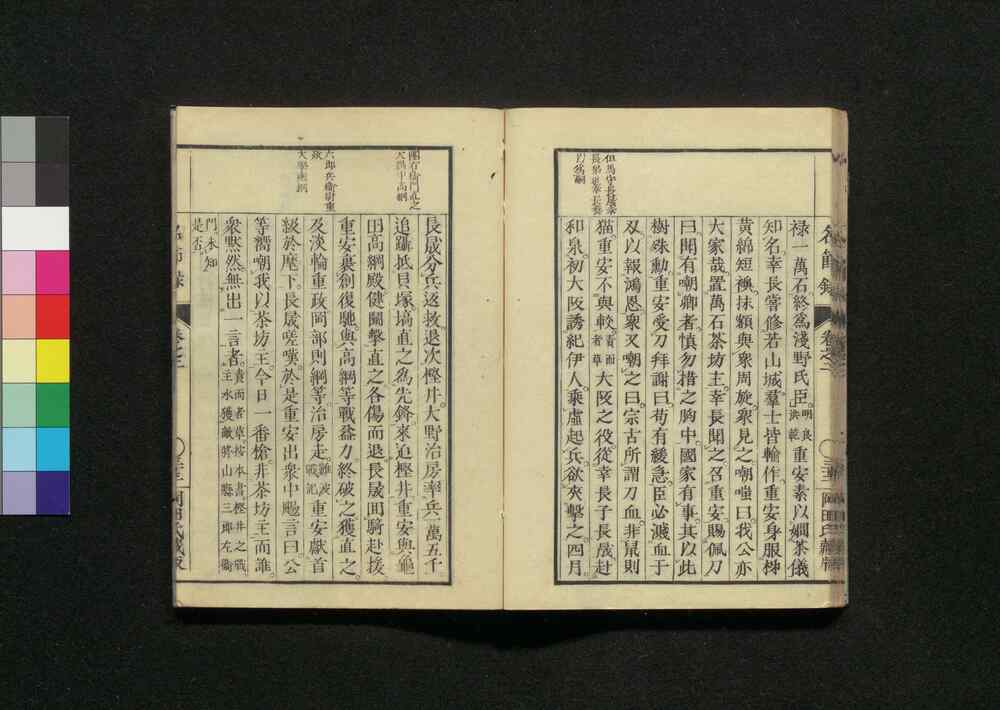 祿一萬石終爲淺野氏臣明良洪範重安素以嫺茶儀
知名幸長嘗修若山城羣士皆輸作重安身服桺
黃綿短襖抹額與衆周旋衆見之嘲嗤曰我公亦
大家哉置萬石茶坊主幸長聞之召重安賜佩刀
曰聞有嘲卿者愼勿措之胸中國家有事其以此
樹殊勳重安受刀拜謝曰苟有緩急臣必濺血于
刄以報鴻恩衆又嘲之曰宗古所謂刀血非鼠則
猫重安不與較責而者草大阪之役從幸長子長晟赴
和泉初大阪誘紀伊人乘虛起兵欲夾擊之四月
但馬守長晟幸
長弟也幸長薨
名節錄
卷之二
岡田氏藏版
長晟分兵逐救退次樫井大野治房率兵一萬五千
追躡抵貝塚塙直之爲先鋒來迫樫井重安與龜
田高綱殿健鬭擊直之各傷而退長晟間騎赴援
重安裹創復馳與高綱等戰益力終破之獲直之
及淡輪重政岡部則綱等治房走難波戰記重安獻首
級於麾下長晟嗟嘆於是重安出衆中颺言曰公
等嚮嘲我以茶坊主今日一番槍非茶坊主而誰
衆默然無出一言者責而者草按本書樫井之戰主水獲敵將山縣三郎左衞
門未知是否
團右衞門直之
大學高綱
六郎兵衞尉重
政
大學則綱
名節錄
卷之二
岡田氏藏版